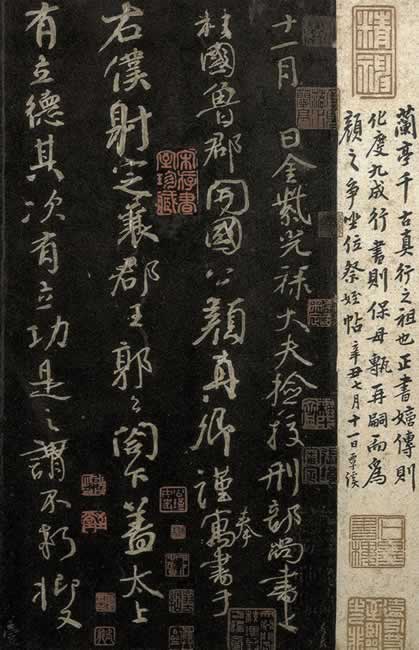 蘭亭千古真行之祖也正書嫡傳則
化度九成行書則保母甎再嗣而爲
顏之争坐位祭姪帖 辛丑七月十一日覃溪
十一月 日金紫光祿大夫檢挍刑部尚書上
柱國魯郡開國公顏真卿謹奉寓書于
右僕射定襄郡王郭公閤下蓋太上
有立德其次有立功是之謂不朽抑又
宋存書室珍藏